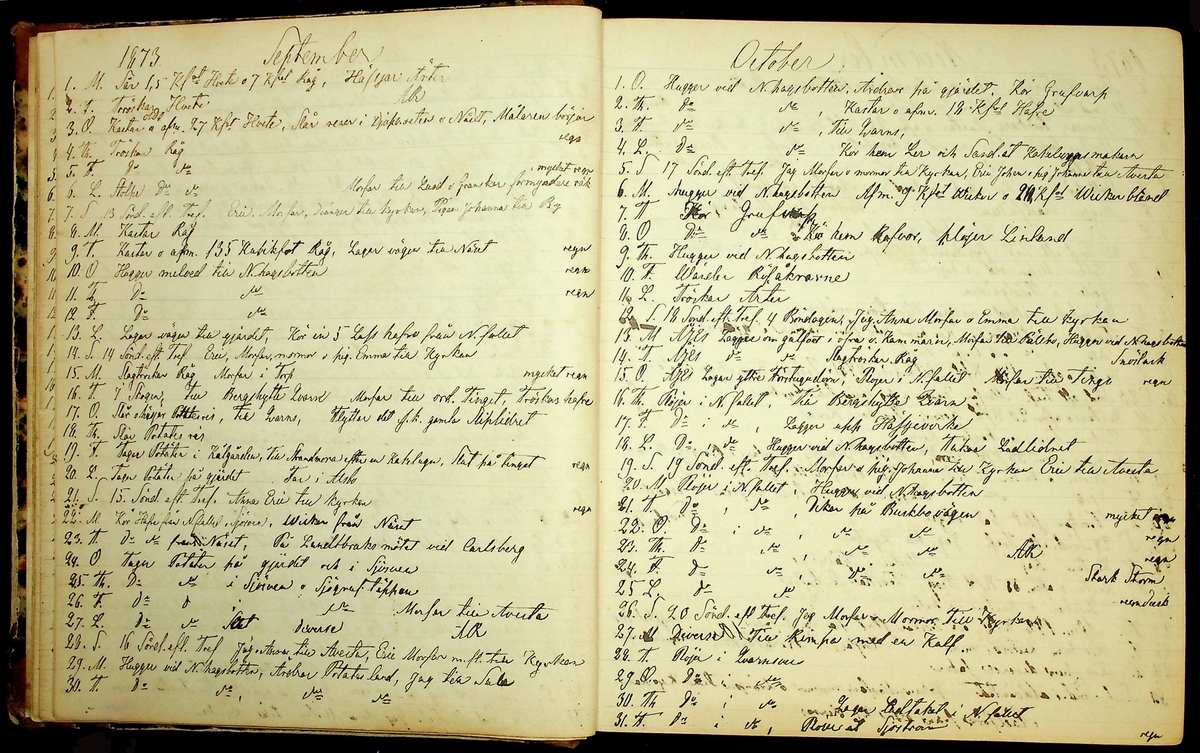 1873. September
1. M. Sår 1,5 Kfot Hvete o 7 Kfot Råg, Häfsjar Ärter
2. T. Tröskar Hvete AR
3. O. Kastar o afm. 27 Kfot Hvete, Slår rener i o Näset, Målaren börjar
4. Th. Tröskar Råg regn
5. F. Do do mycket regn
6. L. Do do Morfar till Lund o Granskar förmyndare räk
7. S 13 Sönd. eft. Tref. Eric, Morfar, till Kyrkan, Pigan Johanna till By
8. M. Kastar Råg
9. T. Kastar o afm. 135 Kubikfot Råg, Lagar vägen till Näset regn
10. O Hugger melved till N.hagsbotten regn
11. T. Do do regn
12. F. Do do
13. L. Lagar vägen till gjärdet, Kör in 5 Lass hafre från N.fallet
14. S. 14 Sönd. eft. Tref. Eric, Morfar, mormor o pig. Emma till Kyrkan
15. M. Slagtröskar Råg Morfar i Torp mycket regn
16. T. 7 Skogen, till Bergshytte Qvarn Morfar till ord. Tinget, Tröskas hafre
17. O. Slår o häfsjar ris, till Qvarns, Flyttar det s.k. gamla
18. Th. Slår Potatis ris
19. F. Tager Potater i Kålgården, till efter en Kakelugn, Slut på tinget regn
20. L. Tager Potater på gjärdet Far i Alsbo
21. S. 15. Sönd. eft. Tref. Anna Eric till Kyrkan regn
22. M. Kör Hafre från N.fallet, Sjörun, Wicker från Näset
23. T. Do do från Näset, På Landtbruksmötet vid Carlsberg
24. O Tager Potater på gjärdet och i Sjörun
25. Th. Do do i Sjörun o Sjögruftäppan
26. F. Do D do Morfar till Avesta
27. L. Do do Slut diverse AR
28. S. 16 Sönd. eft. Tref Jag Anna till Avesta, Eric Morfar m.fl. till Kyrkan
29. M. Hugger vid N.hagsbotten, Ardrar Potatisland, Jag till Sala
30. T. Do do, do do
October
1. O. Hugger vid N.hagsbotten. Ardrar på gjärdet. Kör Grufvarp
2. Th. Do do, Kastar o afm. 18 Kfot Hafre
3. F. do do, till Qvarns,
4. L. Do do Kör hem Ler och Sand åt Kakelugnsmakarn
5. S 17 Sönd. eft. Tref. Jag Morfar o mormor till Kyrkan, Eric Johan o pig Johanna till Avesta
6. M. Hugger vid N.hagsbotten Afm. 9 Kfot Wicker o Kfot Wickerbland
7. T Kör Grufvarp
8. O Do do Kör hem Rofvor, plöjer Linland
9. Th. Hugger vid N.hagsbotten
10. F. Wänder Rifåkrarne
11. L. Tröskar Ärter
12. S. 18 Sönd. eft. Tref. 4 Böndagen, Jag, Anna Morfar o Emma till Kyrkan
13. M Lagges om golfvet i öfra o. Kammarn, Morfar till Hugger vid N.hagsbotten
14. T do do Slagtröskar Råg Snöslask
15. O. Lagar yttre Förstugudörn, Plöjer i N.fallet Morfar till Tings regn
16. Th. Plöjer i N.fallet. till Bergshytte Qvarn
17. F. Do i do, Lägger upp Häfsjevirke
18. L. Do, do Hugger vid N.hagsbotten, takar Ladlidret
19. S. 19 Sönd. eft. Tref. Morfar o pig. Johanna till Kyrkan Eric till Avesta
20. M Plöjer i N.fallet, Hugger vid N.hagsbotten
21. T. Do, do, på Buskbovägen mycket regn
22. O. Do i do, do do regn
23. Th. Do do, do do AR regn
24. F. do do, Do do Stark Storm
25 L. do do regndusk
26. S. 20 Sönd. eft Tref. Jag Morfar o Mormor till Kyrkan
27. M Diverse, till Kimpa med en Kalf.
28. T. Plöjer i Qvarnsrun
29. O. Do i do
30. Th Do i do, Lagar Ladtaket i N.fallet
31. F. Do i do, Plöjer åt Sjöström regn